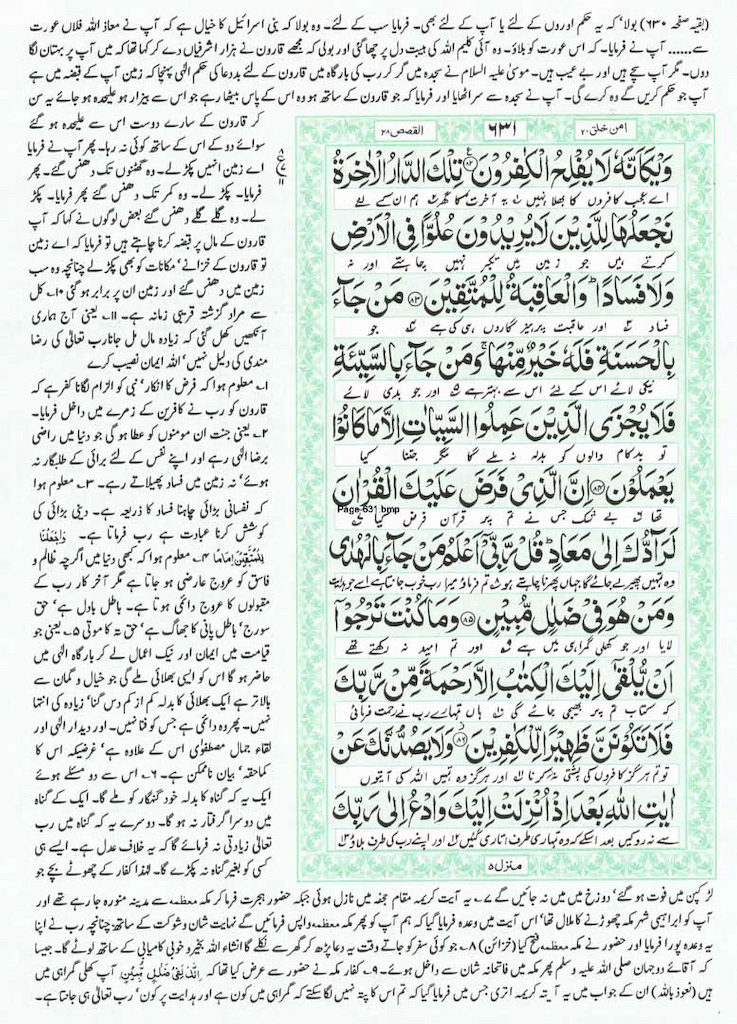 (بقیہ صفحہ ۶۳۰) بولا' کہ یہ حکم اوروں کے لئے یا آپ کے لئے بھی۔ فرمایا سب کے لئے۔ وہ بولا کہ بنی اسرائیل کا خیال ہے کہ آپ نے معاذ اللہ فلاں عورت
سے...... آپ نے فرمایا۔ کہ اس عورت کو بلاؤ۔ وہ آئی کلیم اللہ کی ہیبت دل پر چھا گئی اور بولی کہ مجھے قارون نے ہزار اشرفیاں دے کر کہا تھا کہ میں آپ پر بہتان لگا
دوں۔ مگر آپ سچے ہیں اور بے عیب ہیں۔ موسیٰ علیہ السلام نے سجدہ میں گر کر رب کی بارگاہ میں قارون کے لئے بددعا کی حکم الٰہی پہنچا کہ زمین آپ کے قبضہ میں ہے
آپ جو حکم کریں گے وہ کرے گی۔ آپ نے سجدہ سے سر اٹھایا اور فرمایا کہ جو قارون کے ساتھ ہو وہ اس کے پاس بیٹھا رہے جو اس سے بیزار ہو علیحدہ ہو جائے یہ سن
کر قارون کے سارے دوست اس سے علیحدہ ہو گئے
سوائے دو کے اس کے ساتھ کوئی نہ رہا۔ پھر آپ نے فرمایا
اے زمین انہیں پکڑ لے۔ وہ گھٹنوں تک دھنس گئے۔ پھر
فرمایا۔ پکڑ لے۔ وہ کمر تک دھنس گئے پھر فرمایا۔ پکڑ
لے۔ وہ گلے گلے دھنس گئے بعض لوگوں نے کہا کہ آپ
قارون کے مال پر قبضہ کرنا چاہتے ہیں تو فرمایا کہ اے زمین
تو قارون کے خزانے' مکانات کو بھی پکڑ لے چنانچہ وہ سب
زمین میں دھنس گئے اور زمین ان پر برابر ہو گئی ۱۰۔ کل
سے مراد گزشتہ قریبی زمانہ ہے۔ ۱۱۔ یعنی آج ہماری
آنکھیں کھل گئی کہ زیادہ مال مل جانا رب تعالٰی کی رضا
مندی کی دلیل نہیں' اللہ ایمان نصیب کرے
۱۔ معلوم ہوا کہ فرض کا انکار' نبی کو الزام لگانا کفر ہے کہ
قارون کو رب نے کافرین کے زمرے میں داخل فرمایا۔
۲۔ یعنی جنت ان مومنوں کو عطا ہو گی جو دنیا میں راضی
برضا الٰہی رہے اور اپنے نفس کے لئے برائی کے طلبگار نہ
ہوئے' نہ زمین میں فساد پھیلاتے رہے۔ ۳۔ معلوم ہوا
کہ نفسانی بڑائی چاہنا فساد کا ذریعہ ہے۔ دینی بڑائی کی
کوشش کرنا عبادت ہے رب فرماتا ہے۔ وَاجْعَلْنَا
لِلْمُتَّقِيْنَ اِمَامًا ۴۔ معلوم ہوا کہ کبھی دنیا میں اگرچہ ظالم و
فاسق کو عروج عارضی ہو جاتا ہے مگر آخر کار رب کے
مقبولوں کا عروج دائمی ہوتا ہے۔ باطل بادل ہے' حق
سورج' باطل پانی کا جھاگ ہے' حق تہ کا موتی ۵۔ یعنی جو
قیامت میں ایمان اور نیک اعمال لے کر بارگاہ الٰہی میں
حاضر ہو گا اس کو ایسی بھلائی ملے گی جو خیال و گمان سے
بالاتر ہے ایک بھلائی کا بدلہ کم از کم دس گنا' زیادہ کی انتہا
نہیں۔ پھر وہ دائمی ہے جس کو فنا نہیں۔ اور دیدار الٰہی اور
لقاء جمال مصطفوی اس کے علاوہ ہے' غرضیکہ اس کا
کماحقہ' بیان ناممکن ہے۔ ۶۔ اس سے دو مسئلے ہوئے
ایک یہ کہ گناہ کا بدلہ خود گنہگار کو ملے گا۔ ایک کے گناہ
میں دوسرا گرفتار نہ ہو گا۔ دوسرے یہ کہ گناہ میں رب
تعالٰی زیادتی نہ فرمائے گا کہ یہ خلاف عدل ہے۔ ایسے ہی
کسی کو بغیر گناہ نہ پکڑے گا۔ لہٰذا کفار کے چھوٹے بچے جو
القصص ۲۸
۶۳۱
امن خلق ۲۰
وَيْكَاَنَّهٗ لَا يُفْلِحُ الْكٰفِرُوْنَ ۞ تِلْكَ الدَّارُ الْاٰخِرَةُ
اے عجب کافروں کا بھلا نہیں یہ آخرت کا گھر ہم ان کے لئے
نَجْعَلُهَا لِلَّذِيْنَ لَا يُرِيْدُوْنَ عُلُوًّا فِي الْاَرْضِ
کرتے ہیں جو زمین میں تکبر نہیں چاہتے اور نہ
وَلَا فَسَادًا ؕ وَالْعَاقِبَةُ لِلْمُتَّقِيْنَ ۸۳ مَنْ جَآءَ
فساد اور عاقبت پرہیزگاروں ہی کی ہے جو
بِالْحَسَنَةِ فَلَهٗ خَيْرٌ مِّنْهَا ۚ وَمَنْ جَآءَ بِالسَّيِّئَةِ
نیکی لائے اس کے لئے اس سے بہتر ہے اور جو بدی لائے
فَلَا يُجْزَى الَّذِيْنَ عَمِلُوا السَّيِّاٰتِ اِلَّا مَا كَانُوْا
تو بدکام والوں کو بدلہ نہ ملے گا مگر جتنا کیا
يَعْمَلُوْنَ ۸۴ اِنَّ الَّذِيْ فَرَضَ عَلَيْكَ الْقُرْاٰنَ
تھا بے شک جس نے تم پر قرآن فرض کیا
Page-631.bmp
لَرَآدُّكَ اِلٰى مَعَادٍ ؕ قُلْ رَّبِّيْٓ اَعْلَمُ مَنْ جَآءَ بِالْهُدٰى
وہ تمہیں پھیر لے جائے گا جہاں پھرنا چاہتے ہو تم فرماؤ میرا رب خوب جانتا ہے اسے جو ہدایت
وَمَنْ هُوَ فِيْ ضَلٰلٍ مُّبِيْنٍ ۸۵ وَمَا كُنْتَ تَرْجُوْٓا
لایا اور جو کھلی گمراہی میں ہے اور تم امید نہ رکھتے تھے
اَنْ يُّلْقٰٓى اِلَيْكَ الْكِتٰبُ اِلَّا رَحْمَةً مِّنْ رَّبِّكَ
کہ کتاب تم پر بھیجی جائے گی ہاں تمہارے رب نے رحمت فرمائی
فَلَا تَكُوْنَنَّ ظَهِيْرًا لِّلْكٰفِرِيْنَ ۸۶ وَلَا يَصُدُّنَّكَ عَنْ
تو تم ہرگز کافروں کی پشتی نہ کرنا اور ہرگز وہ تمہیں اللہ کی آیتوں
اٰيٰتِ اللّٰهِ بَعْدَ اِذْ اُنْزِلَتْ اِلَيْكَ وَادْعُ اِلٰى رَبِّكَ
سے نہ روکیں بعد اسکے کہ وہ تمہاری طرف اتاری گئیں اور اپنے رب کی طرف بلاؤ
منزل ۵
لڑکپن میں فوت ہو گئے' دوزخ میں نہ جائیں گے ۷۔ یہ آیت کریمہ مقام جحفہ میں نازل ہوئی جبکہ حضور ہجرت فرما کر مکہ معظمہ سے مدینہ منورہ جا رہے تھے اور
آپ کو ابراہیمی شہر مکہ چھوڑنے کا ملال تھا' اس آیت میں وعدہ فرمایا گیا کہ ہم آپ کو پھر مکہ معظمہ واپس فرمائیں گے نہایت شان و شوکت کے ساتھ چنانچہ رب نے اپنا
یہ وعدہ پورا فرمایا اور حضور نے مکہ معظمہ فتح کیا (خزائن) ۸۔ جو کوئی سفر کو جاتے وقت یہ دعا پڑھ کر گھر سے نکلے گا انشاء اللہ بخیر و خوبی کامیابی کے ساتھ لوٹے گا۔ جیسا
کہ آقائے دو جہان صلی اللہ علیہ وسلم پھر مکہ میں فاتحانہ شان سے داخل ہوئے۔ ۹۔ کفار مکہ نے حضور سے عرض کیا تھا کہ اِنَّكَ لَفِيْ ضَلٰلٍ مُّبِيْنٍ آپ کھلی گمراہی میں
ہیں (نعوذ باللہ) ان کے جواب میں یہ آیتہ کریمہ اتری جس میں فرمایا گیا کہ تم اس کا پتہ نہیں لگا سکتے کہ گمراہی میں کون ہے اور ہدایت پر کون' رب تعالٰی ہی جانتا ہے۔